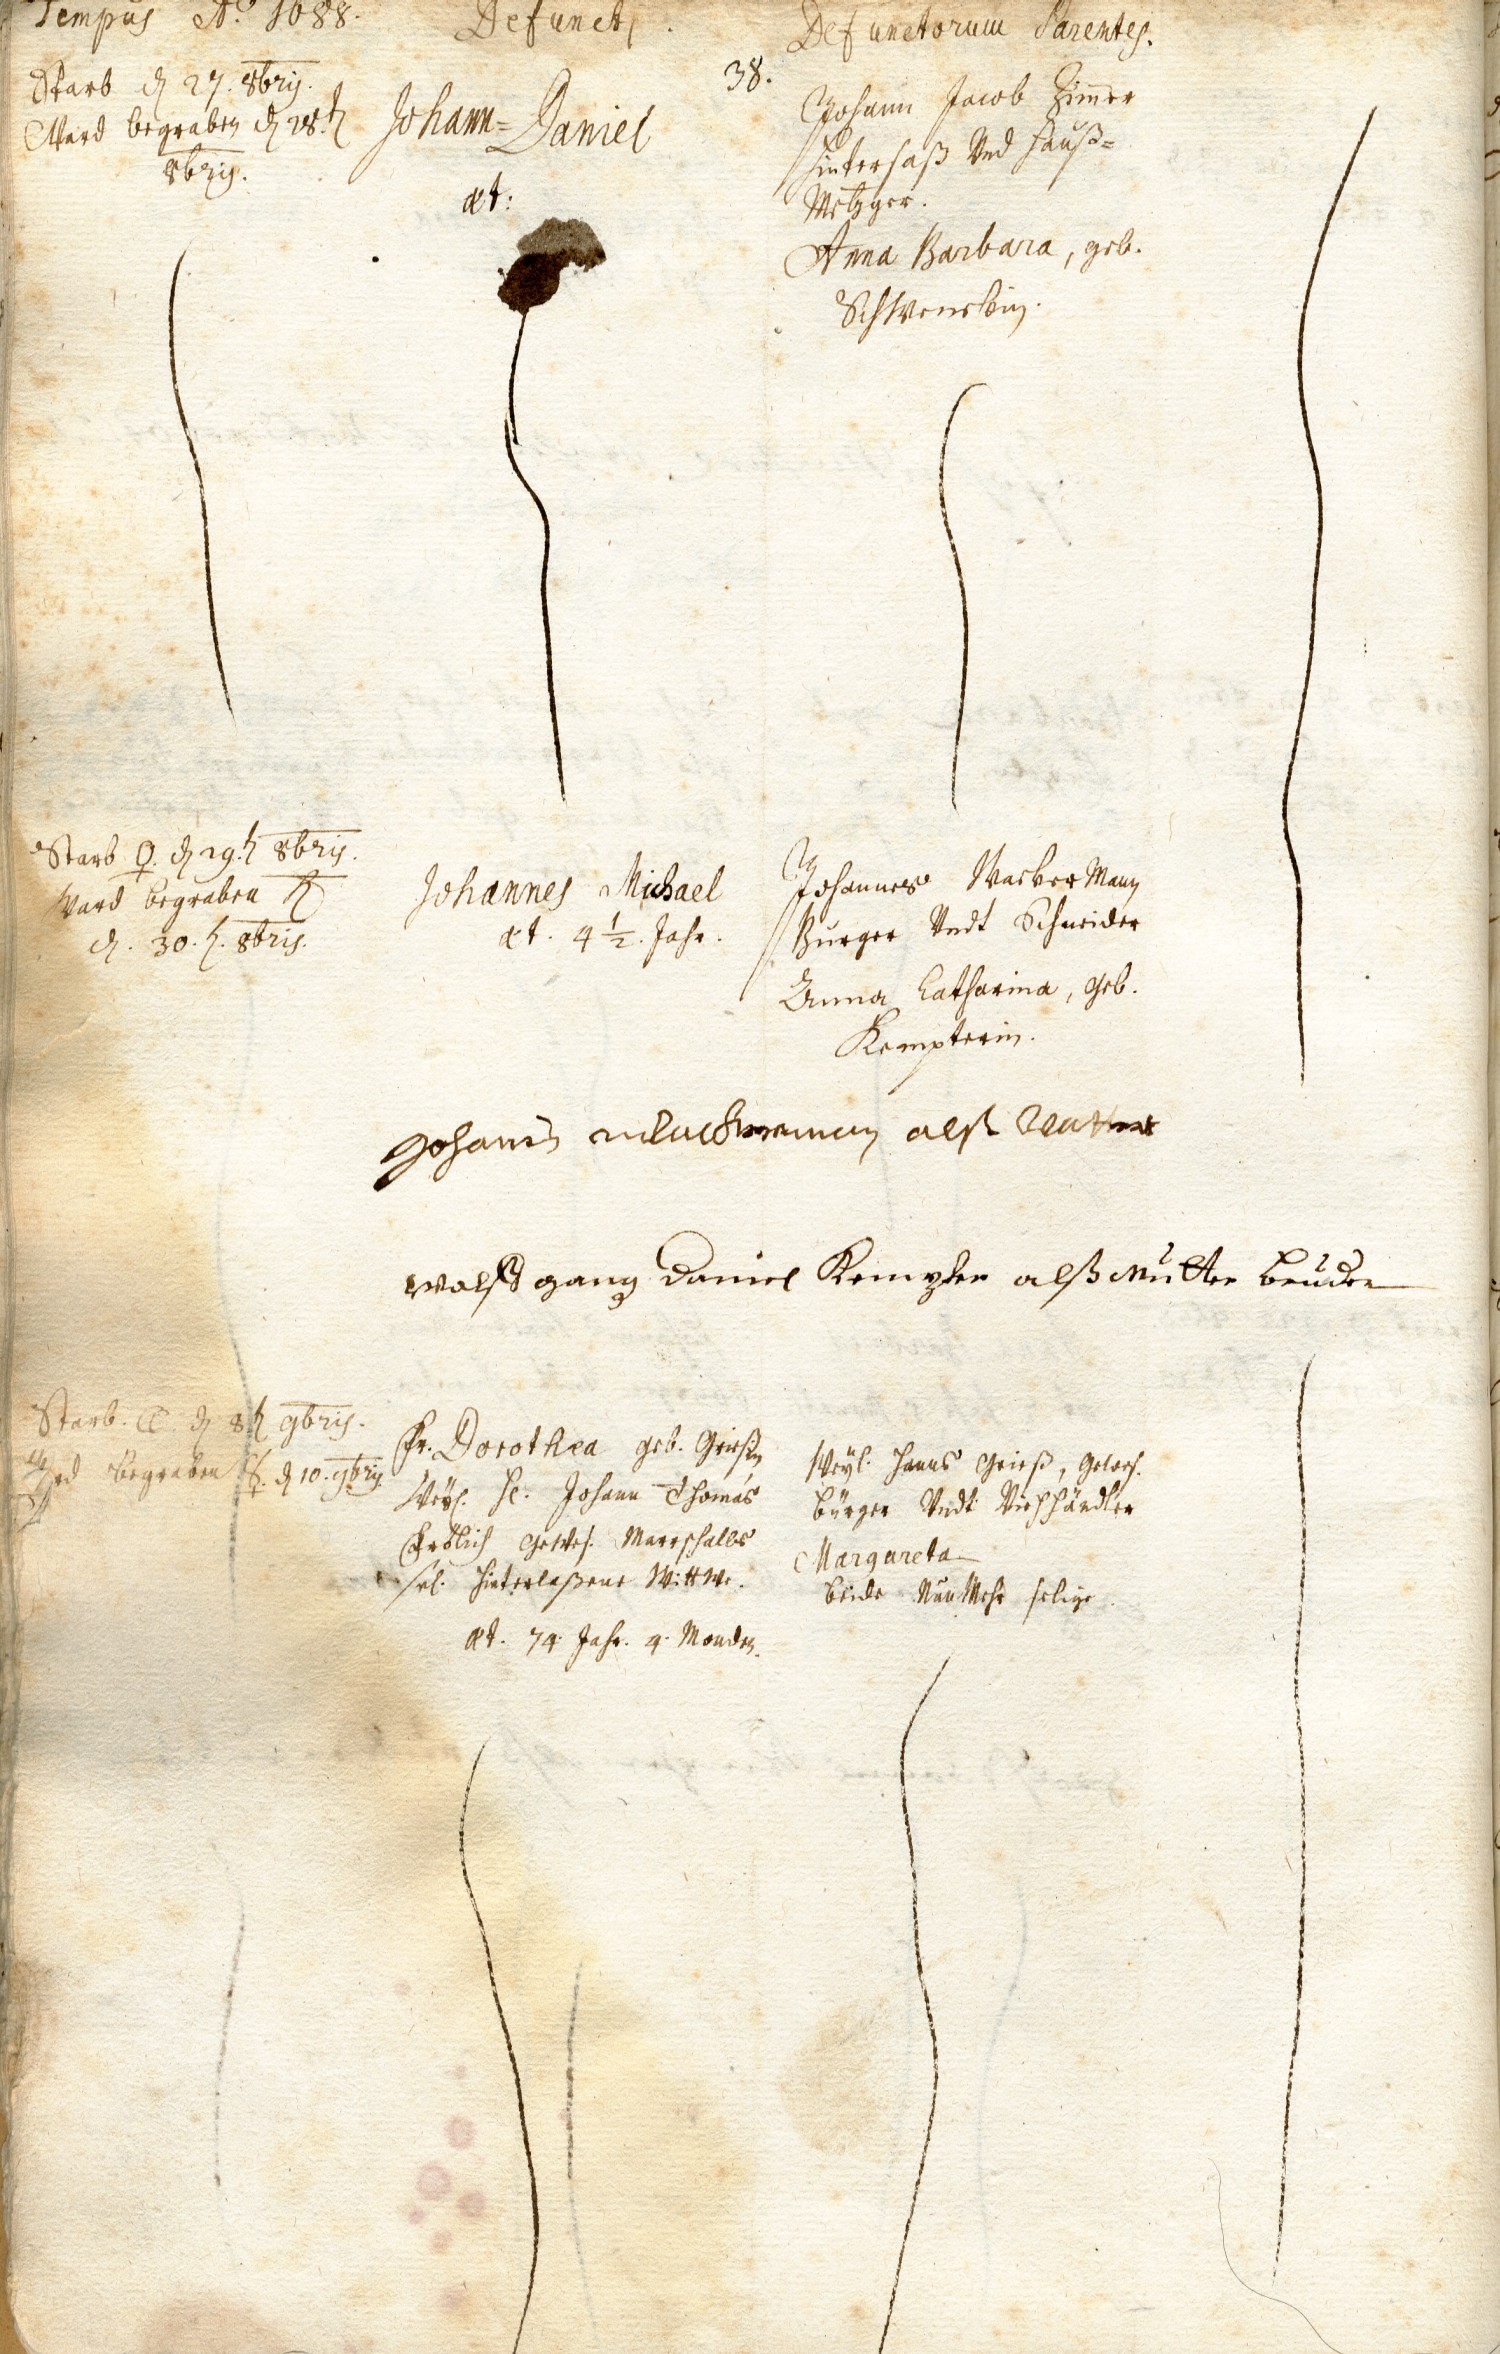 Tempus Aº. 1688.
Defuncti.
Defunctorum Parentes.
38.
Starb d. 27. 8bris.
Ward begraben d. 28.
8bris.
Johann=Daniel
æt:
Johann Jacob Zimer
Hintersaß Und Hauß=
Metzger.
Anna Barbara, geb.
Starb ♀. d. 29. 8bris.
Ward begraben ♄
d. 30. 8bris.
Johannes Michael
æt. 4 ½. Jahr.
Johannes WackerMann
Burger Undt Schneider
Anna Catharina, geb.
Kempterin.
Johannes wackerman alß Vatter
wolffgang Daniel Kempter alß Mutter bruder
Starb ☾ d. 8 9bris.
Ward Begraben d. 10. 9bris
Fr. Dorothea geb. Grießin
Weyl. H. Johann Thomas
Frölich gewes. Marschalls
sel. hinterlaßene Wittwe.
æt. 74 Jahr. 4. Monden.
Weyl. Hanns Grieß, gewes.
bürger Undt Viehhändler
Margareta
beide NunMehr selige.